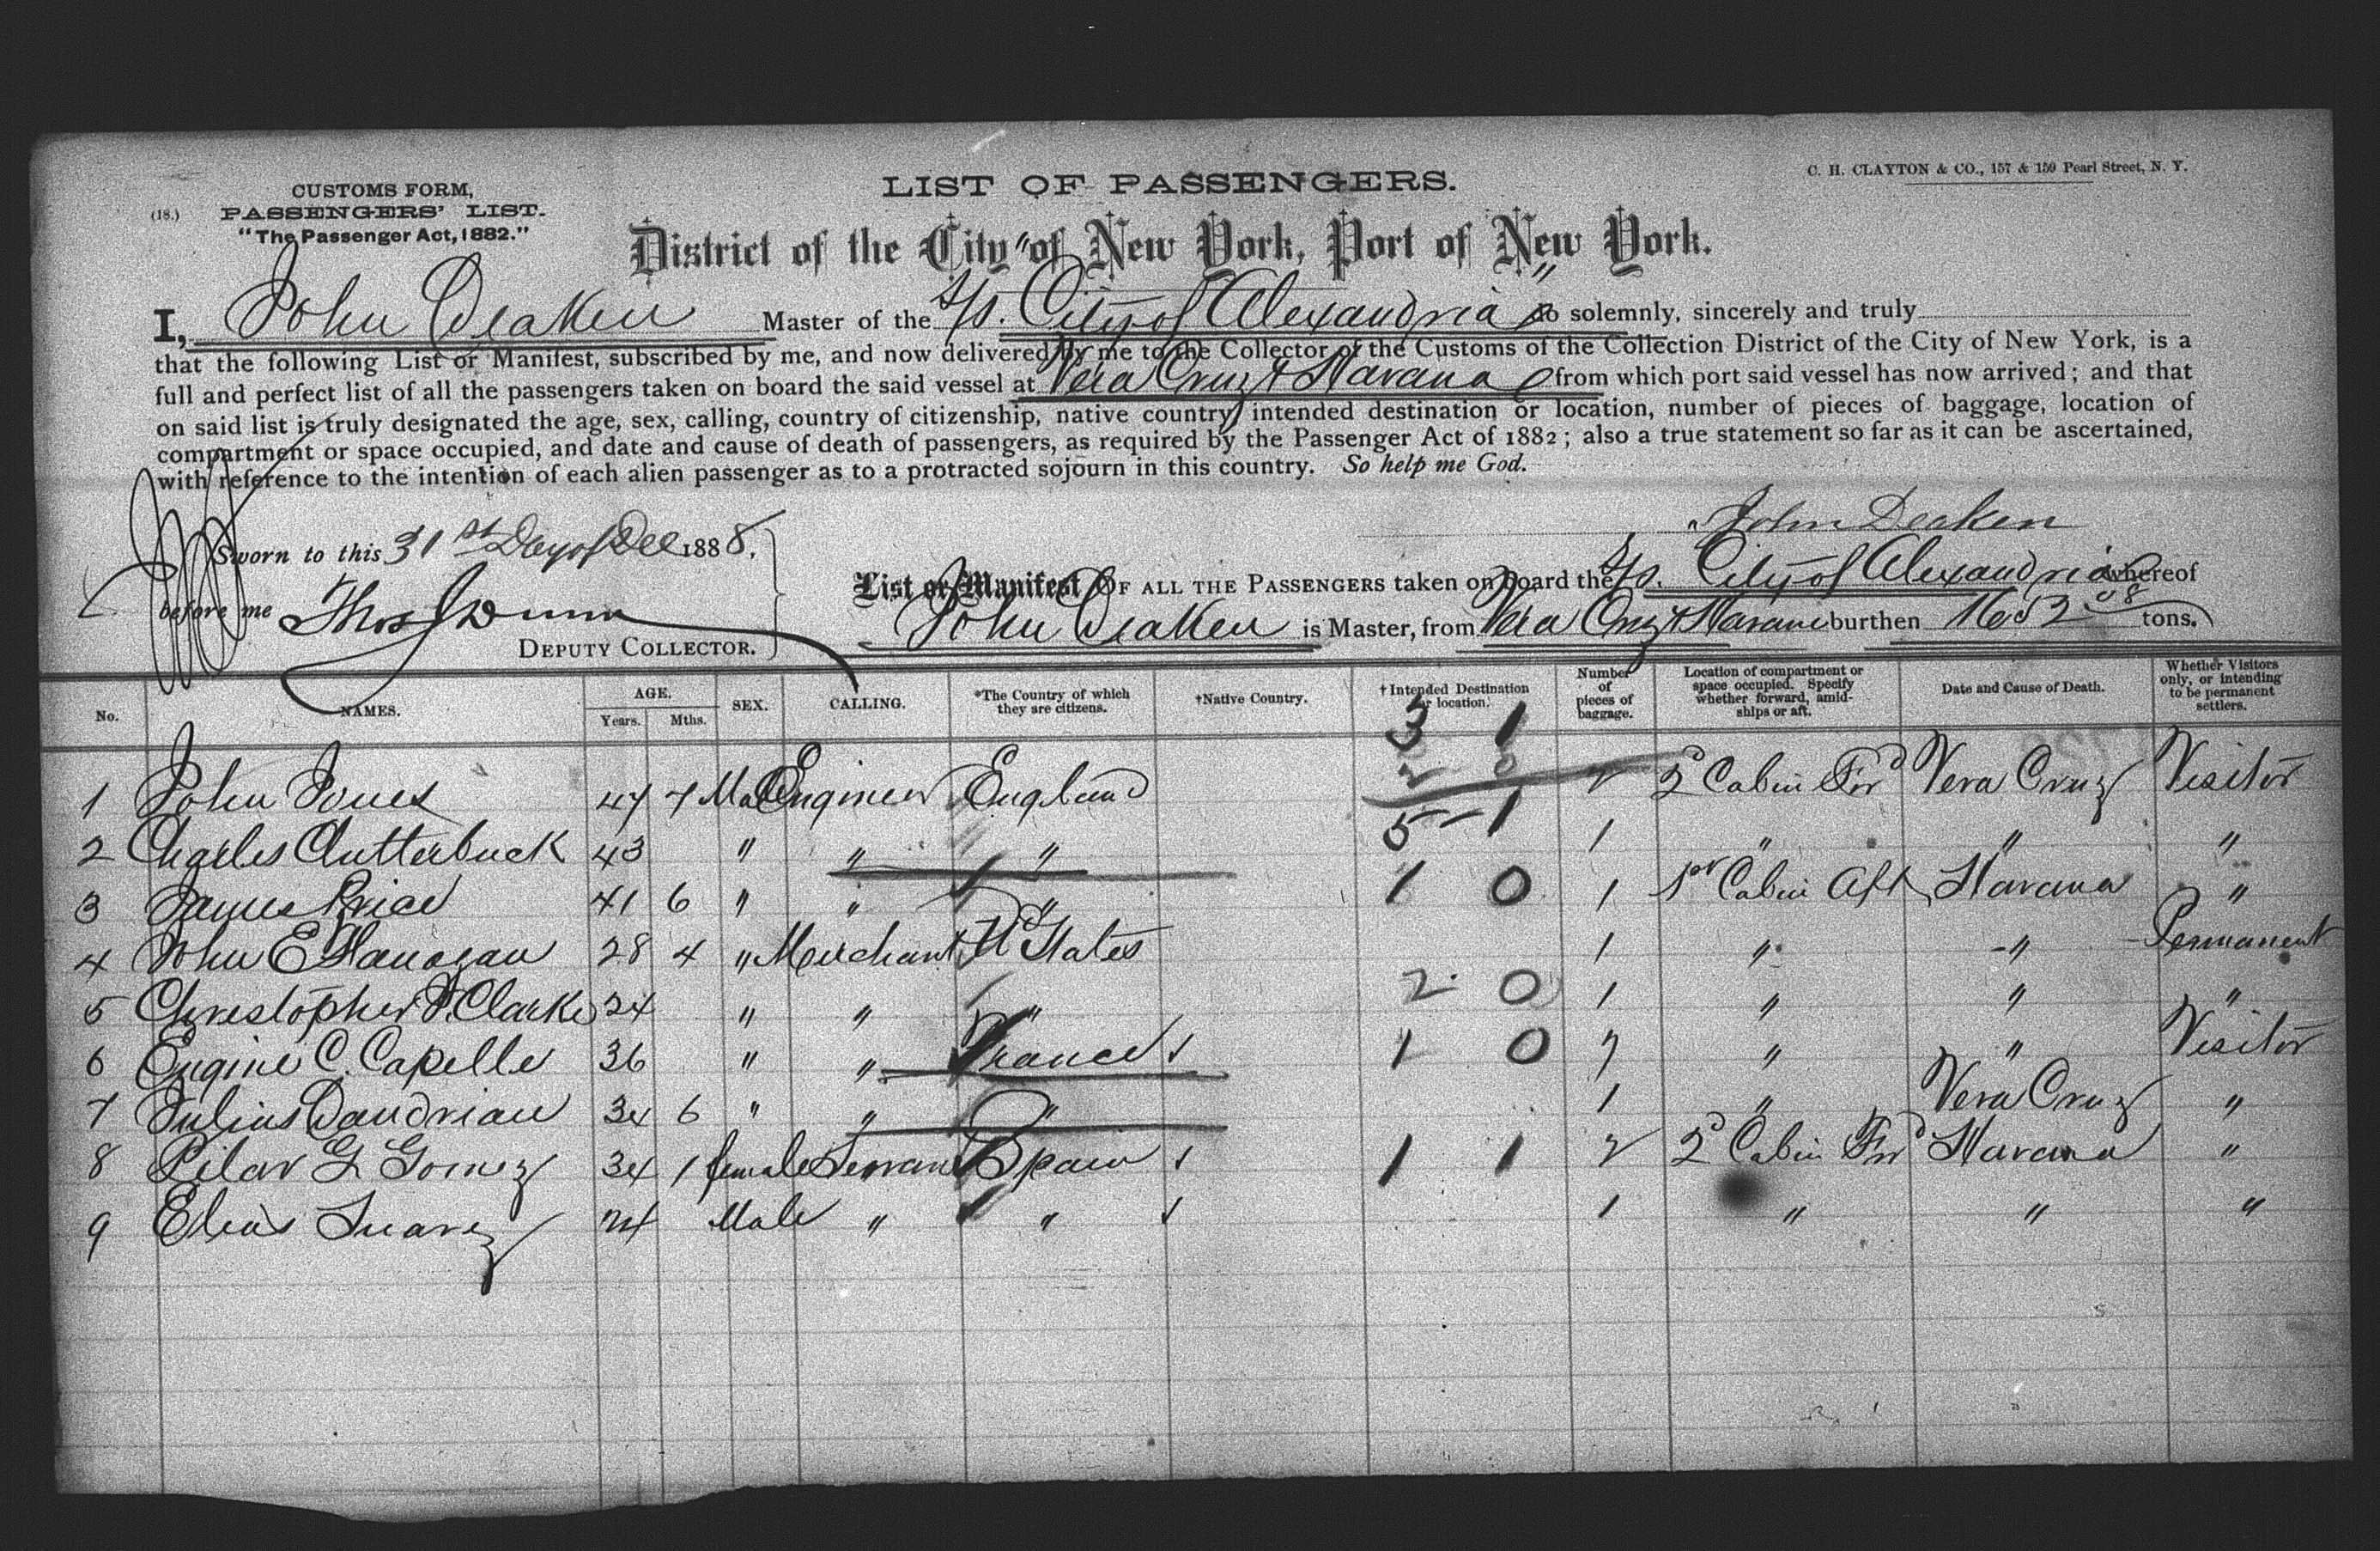 C. H. CLAYTON & CO., 157 & 159 Pearl Street, N. Y.
LIST OF PASSENGERS.
CUSTOMS FORM,
(18.) PASSENGERS' LIST.
"The Passenger Act, 1882."
District of the City of New York, Port of New York.
I, John Deaken Master of the S/S. "City of Alexandria" do solemnly, sincerely and truly
that the following List or Manifest, subscribed by me, and now delivered by me to the Collector of the Customs of the Collection District of the City of New York, is a
full and perfect list of all the passengers taken on board the said vessel at Vera Cruz & Havana from which port said vessel has now arrived; and that
on said list is truly designated the age, sex, calling, country of citizenship, native country, intended destination or location, number of pieces of baggage, location of
compartment or space occupied, and date and cause of death of passengers, as required by the Passenger Act of 1882; also a true statement so far as it can be ascertained,
with reference to the intention of each alien passenger as to a protracted sojourn in this country. So help me God.
John Deaken
Sworn to this 31st Day of Dec 1888,
before me Thos Dunn
DEPUTY COLLECTOR.
List or Manifest OF ALL THE PASSENGERS taken on board the S/S. City of Alexandria whereof
John Deaken is Master, from Vera Cruz & Havana burthen 1652 08 tons.
No. NAMES. AGE. Years. Mths. SEX. CALLING. *The Country of which they are citizens. †Native Country. †Intended Destination or location. Number of pieces of baggage. Location of compartment or space occupied. Specify whether forward, amidships or aft. Date and Cause of Death. Whether Visitors only, or intending to be permanent settlers.
3 1
2 0
1 John Jones 47 7 Male Engineer England 2 2d Cabin Fwd Vera Cruz Visitor
5 - 1
2 Charles Clutterbuck 43 " " " 1 " " "
3 James Price 41 6 " " " 1 0 1 1st Cabin Aft Havana "
4 John E Flanagan 28 4 " Merchant U States 1 " " Permanent
5 Christopher F. Clarke 24 " " " 2 0 1 " " "
6 Eugine C. Capelle 36 " " France 1 0 7 " " Visitor
7 Julius Dandrian 34 6 " " " 1 " Vera Cruz "
8 Pilar G Gomez 34 1 female Servant Spain 1 1 2 2d Cabin Fwd Havana "
9 Elias Suarez 24 Male " " 1 " " "